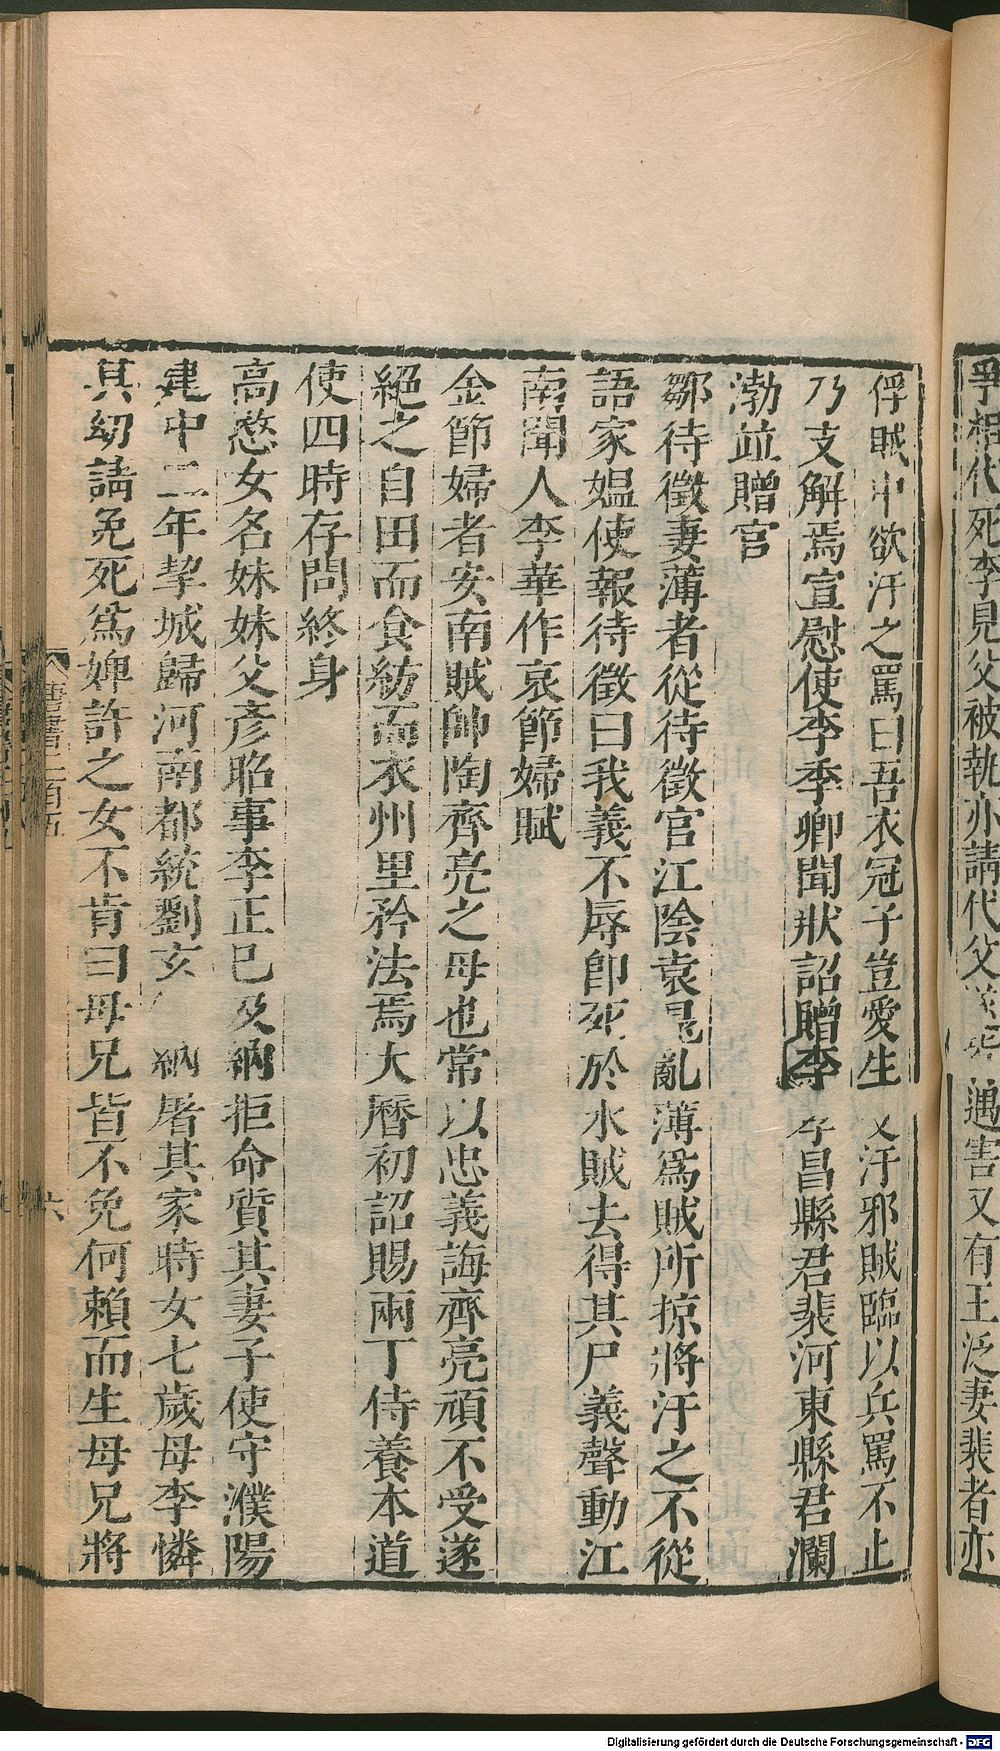 爭相代死李見父被執亦請代父遂死遇害又有王泛妻裴者亦
俘賊中欲汙之罵曰吾衣冠子豈愛生又汙邪賊臨以兵罵不止
乃支解焉宣慰使李季卿聞狀詔贈李孝昌縣君裴河東縣君瀾
渤竝贈官
鄒待徵妻薄者從待徵官江陰袁晁亂薄爲賊所掠將汙之不從
語家媼使報待徵曰我義不辱即死於水賊去得其尸義聲動江
南聞人李華作哀節婦賦
金節婦者安南賊帥陶齊亮之母也常以忠義誨齊亮頑不受遂
絕之自田而食紡而衣州里矜法焉大曆初詔賜兩丁侍養本道
使四時存問終身
高愍女名妹妹父彥昭事李正巳及納拒命質其妻子使守濮陽
建中二年挈城歸河南都統劉玄 納屠其家時女七歲母李憐
其幼請免死爲婢許之女不肯曰母兄皆不免何賴而生母兄將
唐書二百五
六
Digitalisierung gefördert durch die Deutsche Forschungsgemeinschaft - DFG